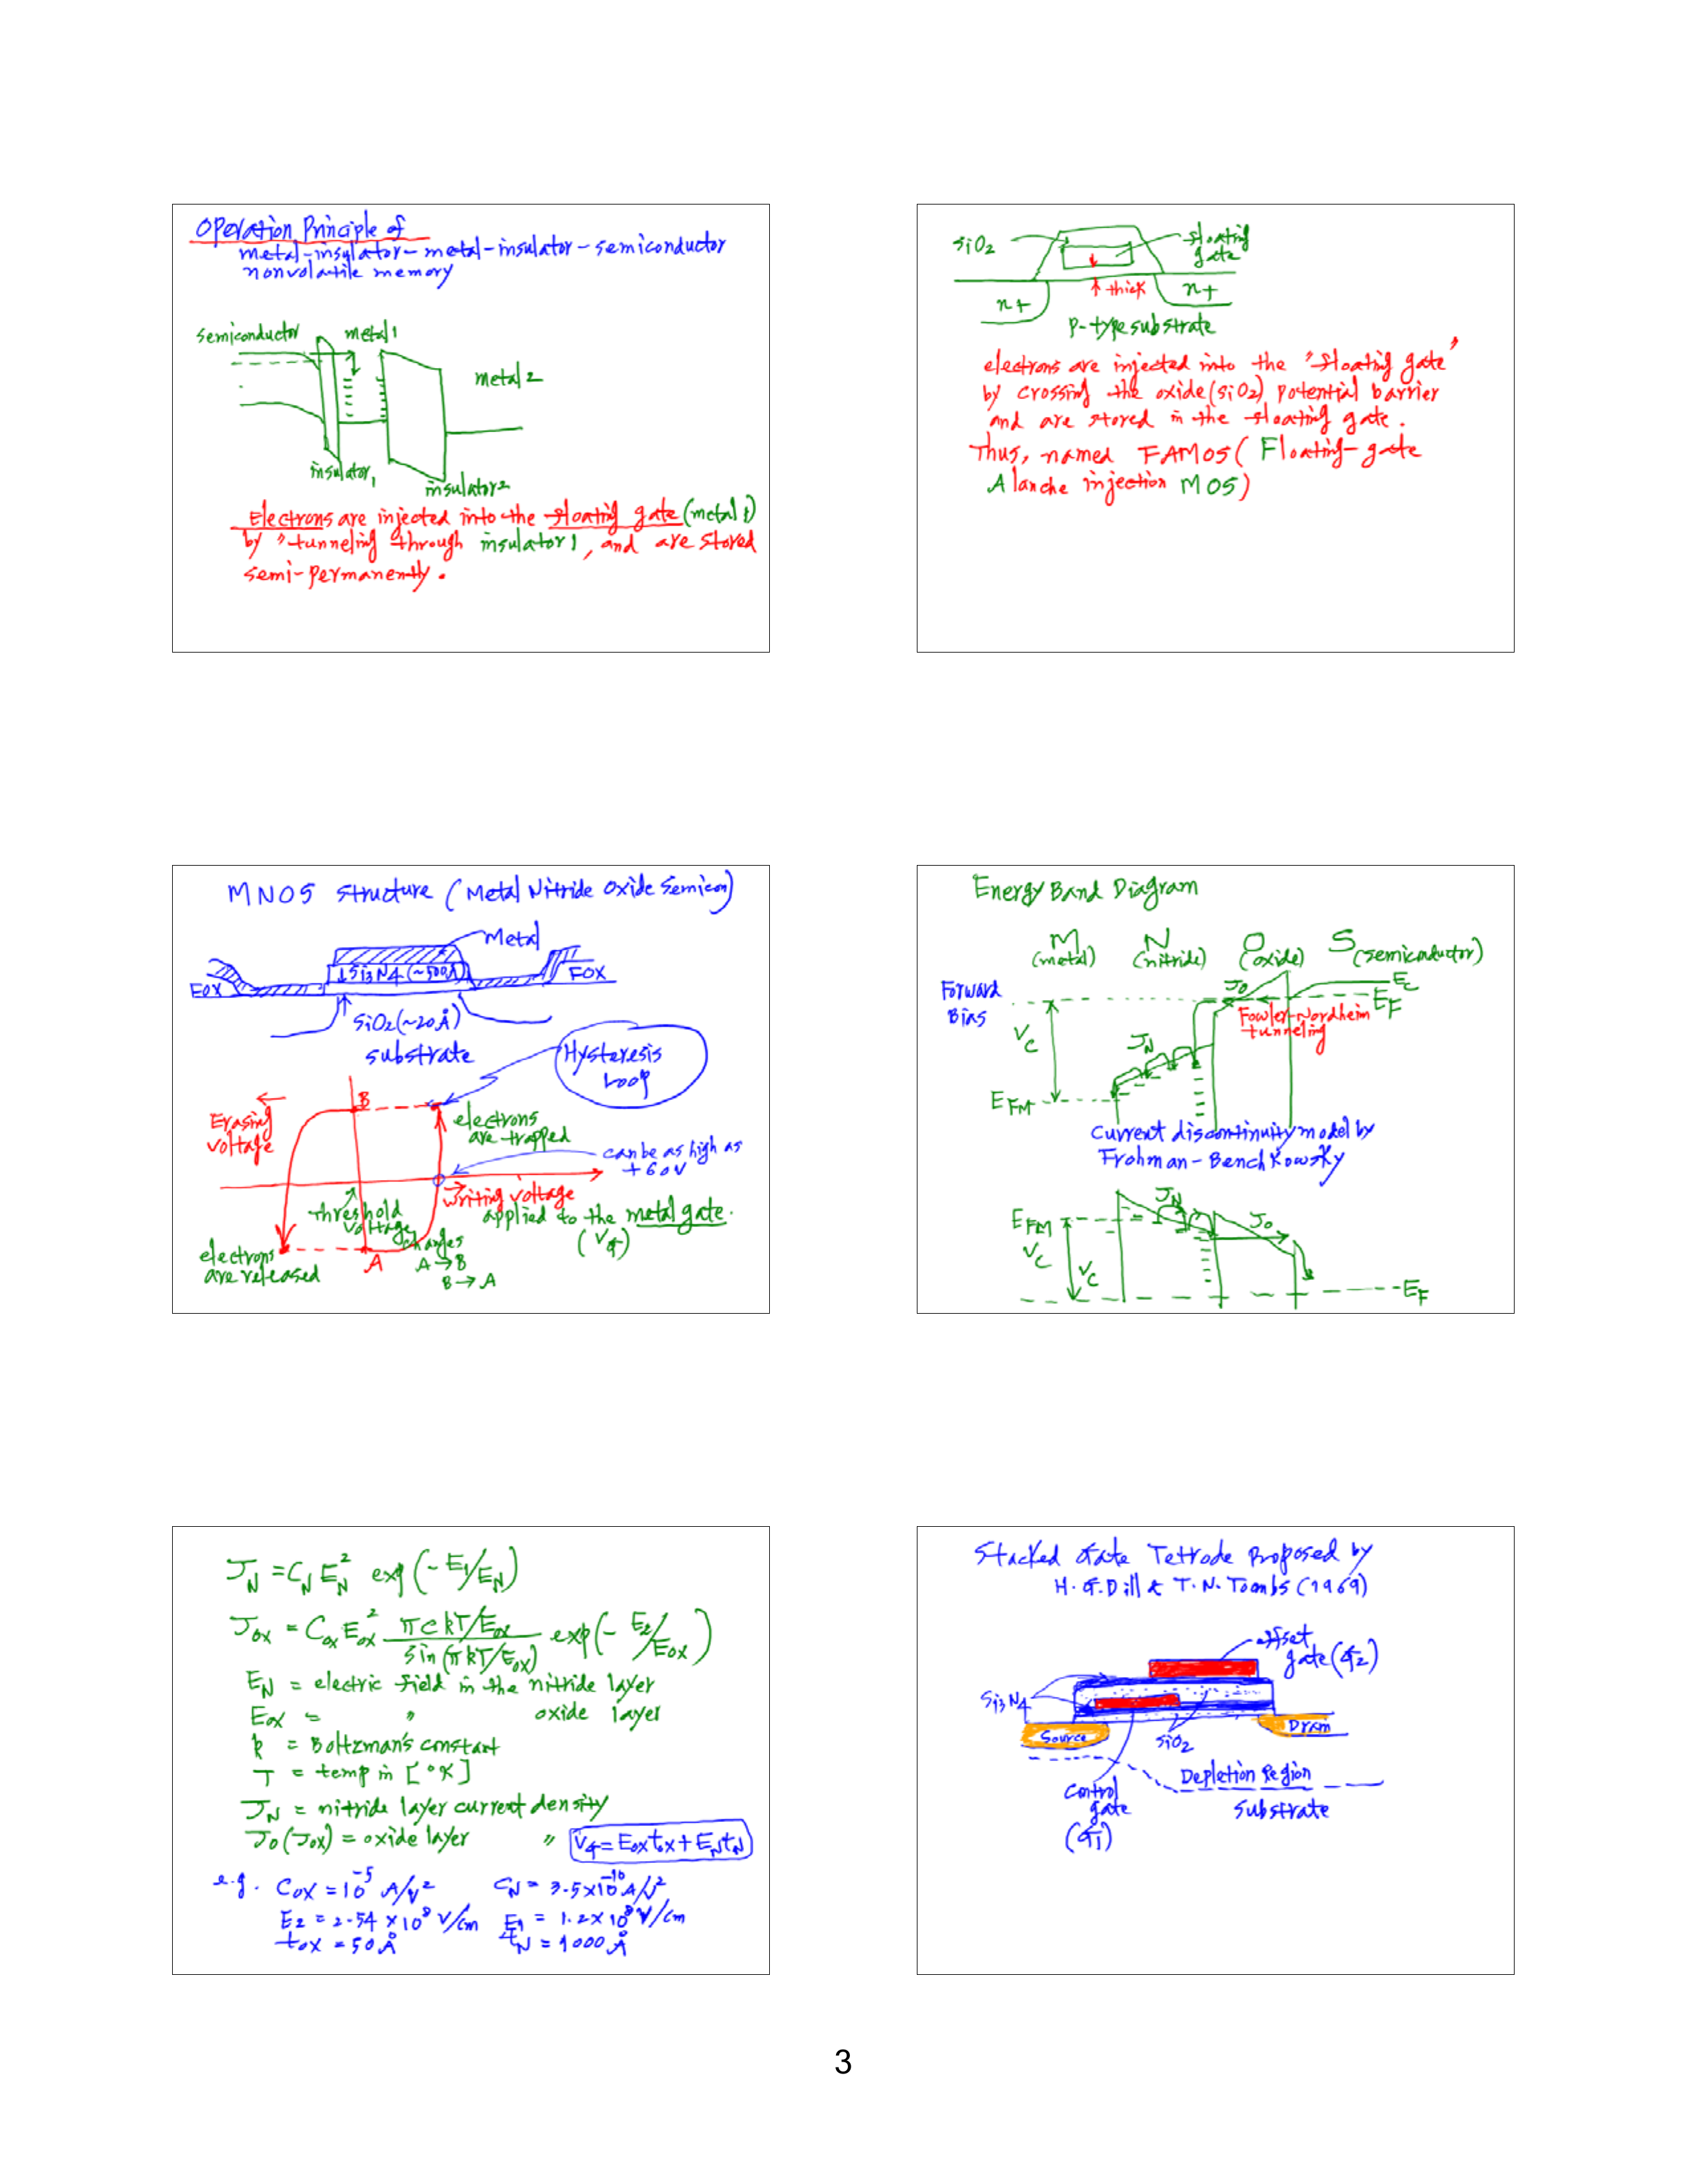 Operation Principle of
metal-insulator-metal-insulator-semiconductor
nonvolatile memory
semiconductor metal1
metal2
insulator1
insulator2
Electrons are injected into the floating gate (metal1)
by "tunneling through insulator1, and are stored
semi-permanently.
SiO2 floating
gate
thick
n+ n+
P-type substrate
electrons are injected into the "floating gate"
by crossing the oxide (SiO2) potential barrier
and are stored in the floating gate.
Thus, named FAMOS (Floating-gate
Alanche injection MOS)
MNOS structure (Metal Nitride Oxide Semicon)
Metal
Si3N4 (~500Å)
FOX FOX
SiO2 (~20Å)
substrate
Hysteresis
Loop
B
Erasing
voltage
electrons
are trapped
can be as high as
+60V
writing voltage
applied to the metal gate.
(VG)
threshold
voltage
changes
A→B
B→A
A
electrons
are released
Energy Band Diagram
M N O S
(metal) (nitride) (oxide) (semiconductor)
Forward
Bias
JO EC
EF
Fowler-Nordheim
tunneling
VC
JN
EFM
Current discontinuity model by
Frohman-BenchKowsky
JN
EFM JO
VC
VC
EF
JN = CN EN² exp(-E1/EN)
Jox = Cox Eox² πckT/Eox / sin(πkT/Eox) exp(-E2/Eox)
EN = electric field in the nitride layer
Eox = " oxide layer
k = Boltzman's constant
T = temp in [°K]
JN = nitride layer current density
Jo (Jox) = oxide layer "
VG = Eox tox + EN tN
e.g. Cox = 10⁻⁵ A/V² CN = 3.5×10⁻¹⁰ A/V²
E2 = 2.54 × 10⁸ V/cm E1 = 1.2×10⁸ V/cm
tox = 50Å tN = 1000Å
Stacked Gate Tetrode Proposed by
H.G.Dill & T.N.Toombs (1969)
offset
gate (G2)
Si3N4
Source Drain
SiO2
Depletion Region
Control
gate
(G1)
substrate
3